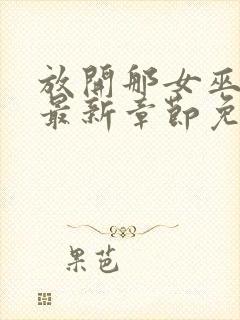 放開那女巫
最新章節免
果芭